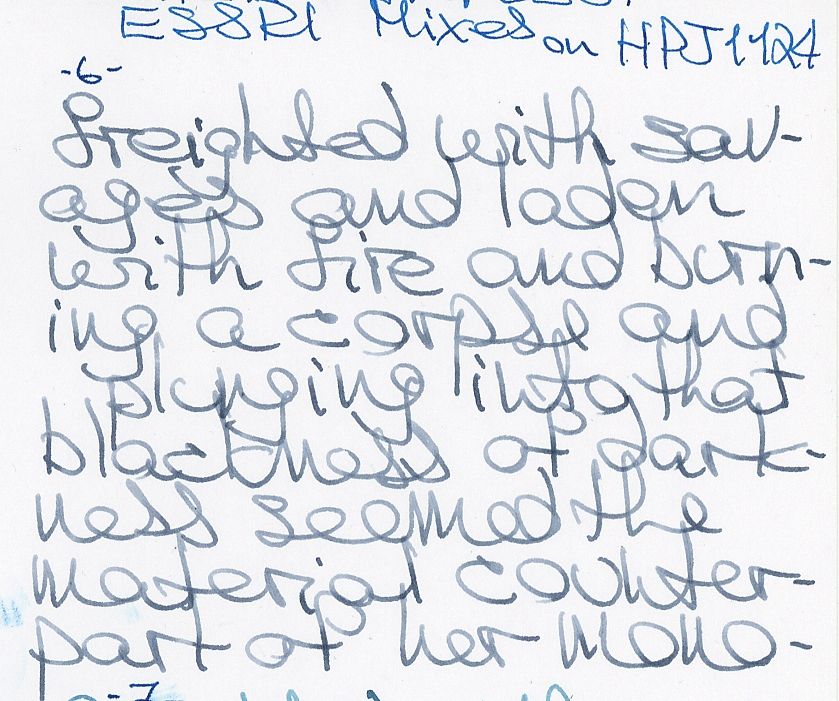 ESSRI Mixes on HPJ1124
-6-
freighted with sav-
ages and laden
with fire and burn-
ing a corpse and
plunging into that
blackness of dark-
ness seemed the
material counter-
part of her mono-
-7-